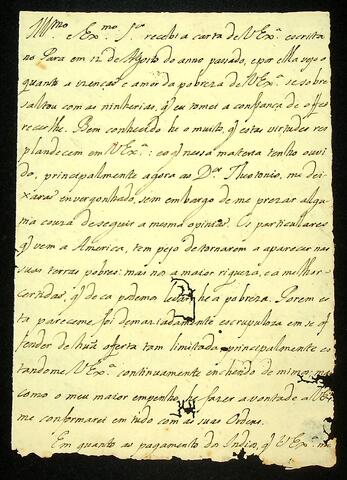 Ill.mo e Ex.mo S.r recebi a carta de V Ex.a escrita
no Para em 12 de Agosto do anno passado, e por ella vejo o
quanto a vz.ençao e amor da pobreza de V Ex.a se sobre
saltou com as ninherias, q̃ eu tomei a confiança de offe
recerlhe. Bem conhecido he o muito, q̃ estas virtudes res
plandecem em V Ex.a: e o q̃ nessa materia tenho ouvi
do, principalmente agora ao D.or Theotonio, me dei
xara envergonhado, sem embargo de me prezar algu
ma couza de seguir a mesma opiniaõ. Os particulares
q̃ vem a America, tem pejo de tornarem a aparecer nas
suas terras pobres: mas nos a maior riqueza, e a melhor
certidaõ, q̃ de ca podemos levar he a pobreza. Porem es
ta pareceme foi demaziadamente escrupuloza em se of
fender de huã oferta tam limitada, principalmente es
tando me V Ex.a continuamente enchendo de mimos: mas
como o meu maior empenho he fazer a vontade a V Ex.a
me conformarei em tudo com as suas Ordens.
Em quanto ao pagamento do Indio, q̃ V Ex.a m